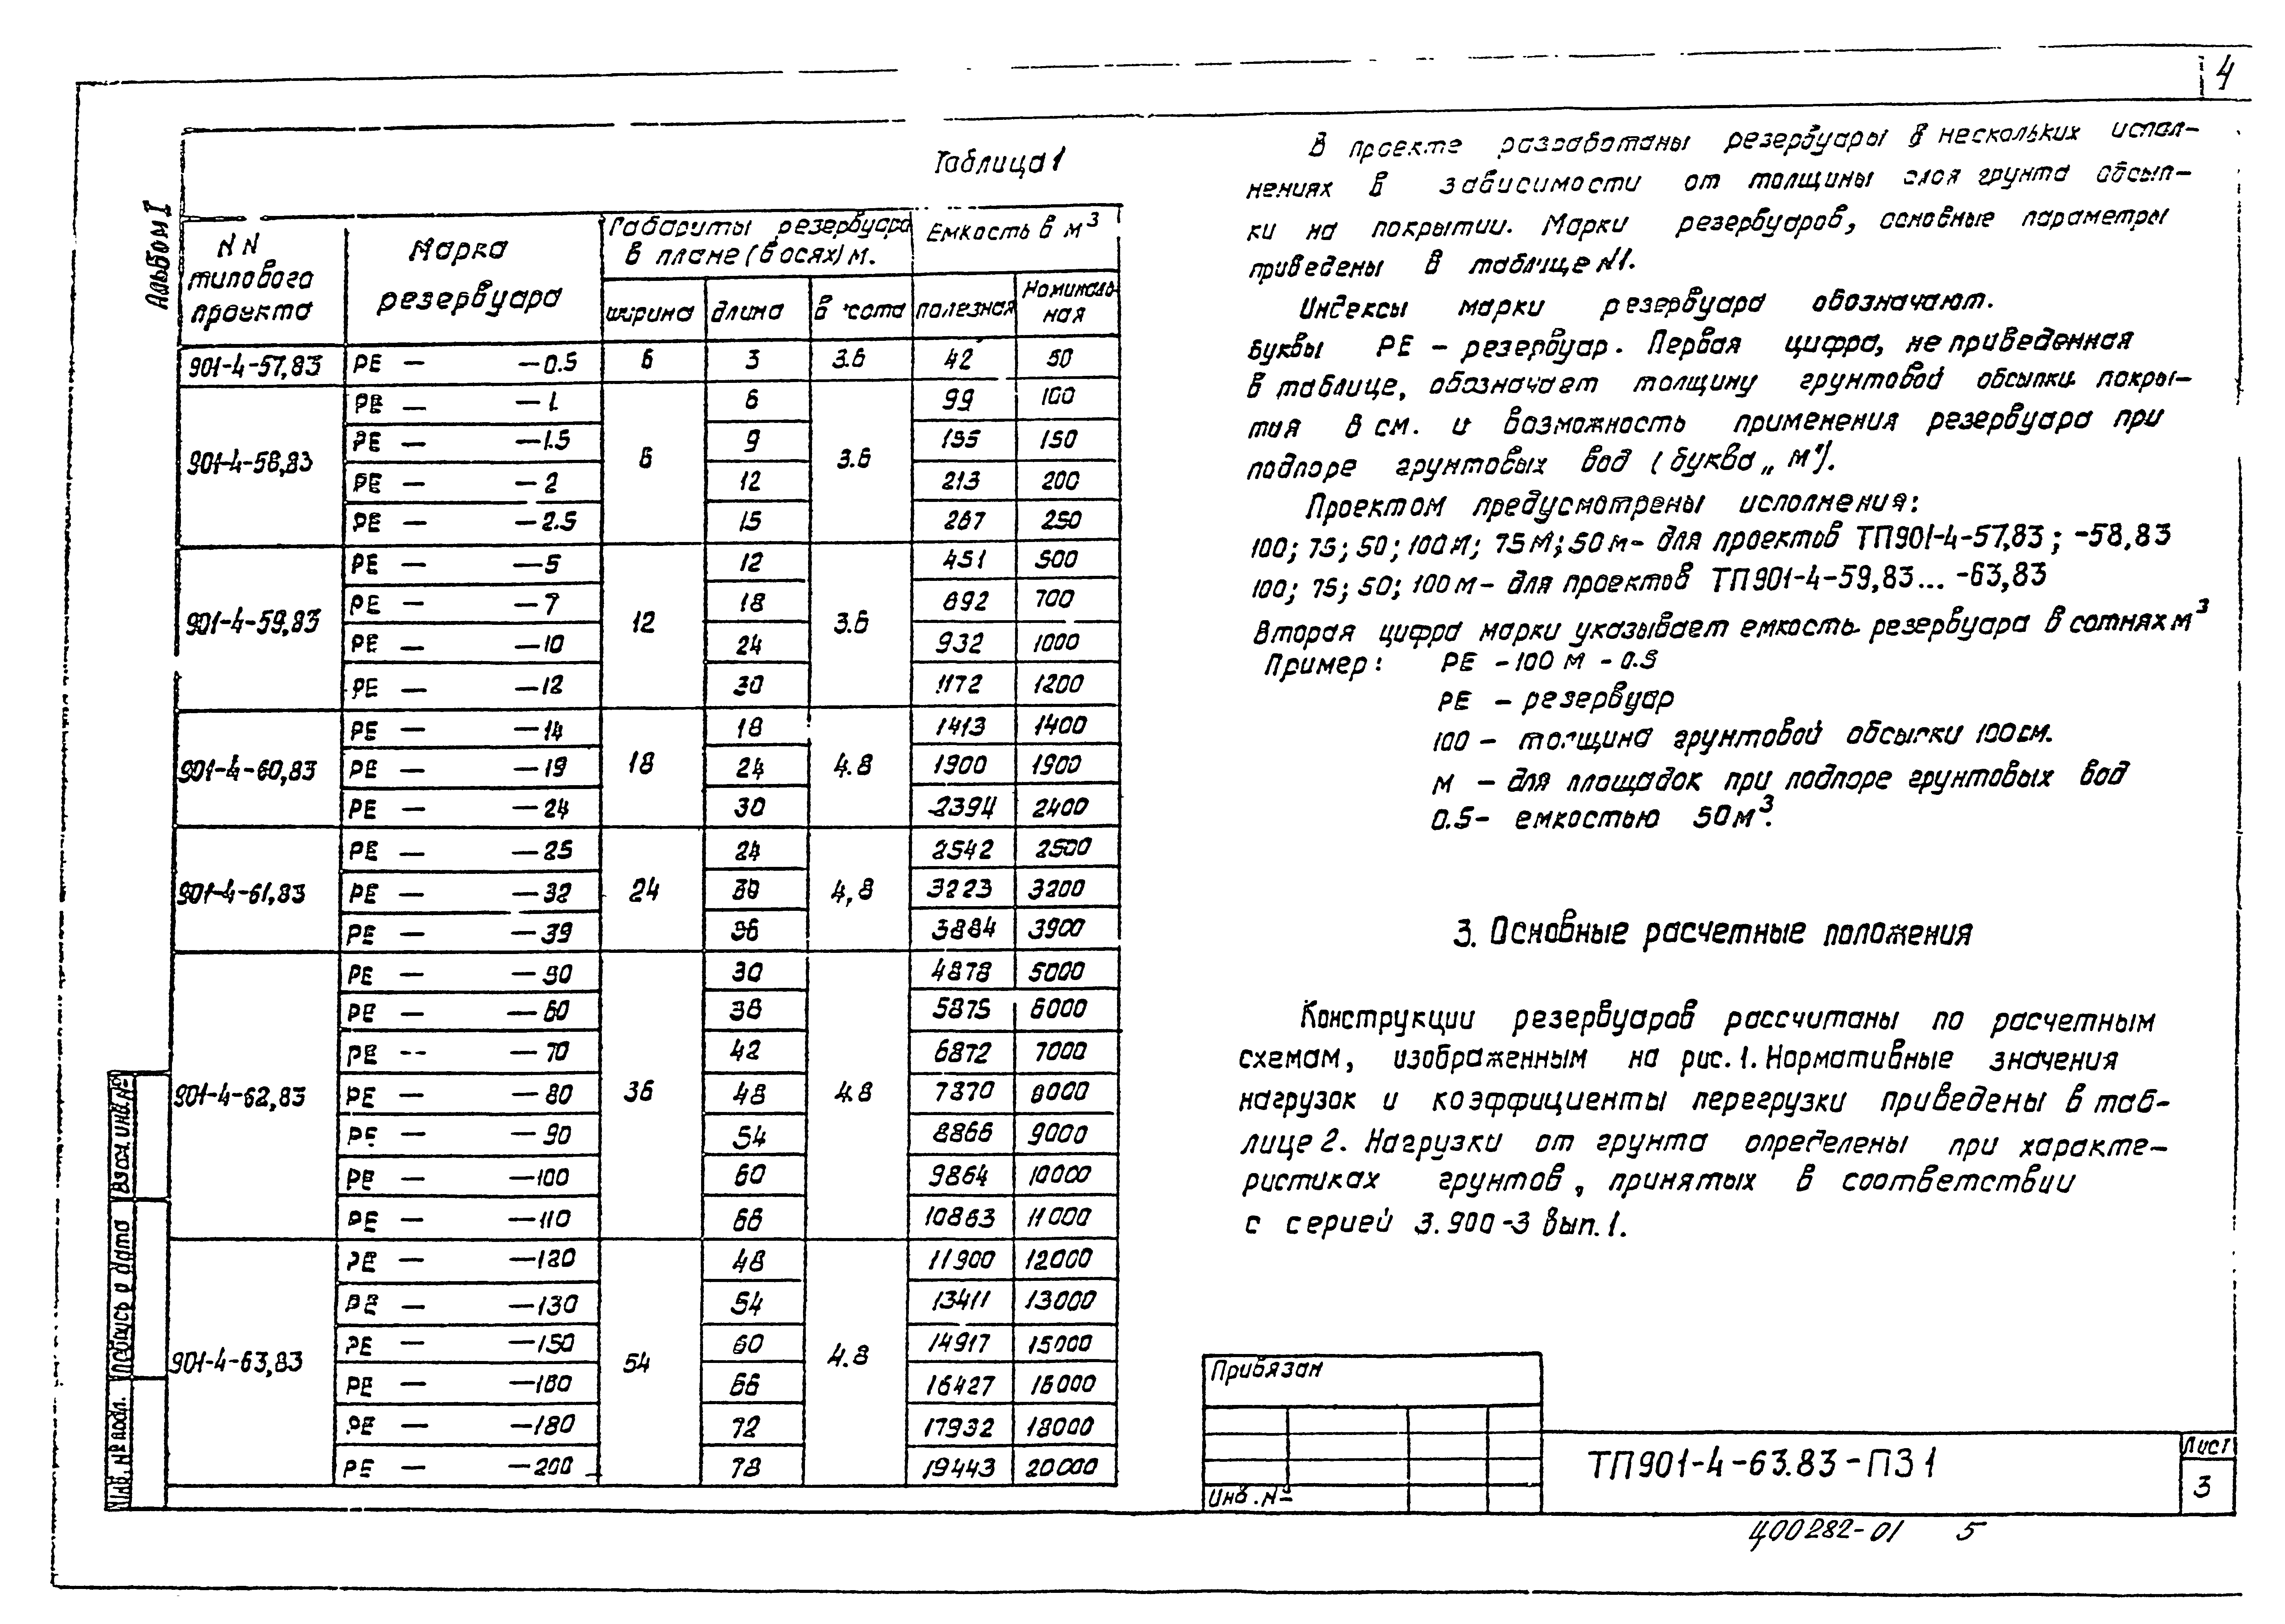 4
Альбом I
Таблица 1
NN типового проекта
Марка резервуара
Габариты резервуара в плане (в осях) м.
Емкость в м³
ширина
длина
высота
полезная
Номинальная
901-4-57,83 РЕ — —0.5 6 3 3.6 42 50
РЕ — —1 6 99 100
РЕ — —1.5 9 155 150
901-4-58,83 6 3.6
РЕ — —2 12 213 200
РЕ — —2.5 15 267 250
РЕ — —5 12 451 500
РЕ — —7 18 692 700
901-4-59,83 12 3.6
РЕ — —10 24 932 1000
РЕ — —12 30 1172 1200
РЕ — —14 18 1413 1400
901-4-60,83 РЕ — —19 18 24 4.8 1900 1900
РЕ — —24 30 2394 2400
РЕ — —25 24 2542 2500
901-4-61,83 РЕ — —32 24 30 4,8 3223 3200
РЕ — —39 36 3884 3900
РЕ — —50 30 4878 5000
РЕ — —60 36 5875 6000
РЕ -- —70 42 6872 7000
901-4-62,83 РЕ — —80 36 48 4.8 7870 8000
РЕ — —90 54 8866 9000
РЕ — —100 60 9864 10000
РЕ — —110 66 10863 11000
РЕ — —120 48 11900 12000
РЕ — —130 54 13411 13000
РЕ — —150 60 14917 15000
901-4-63,83 54 4.8
РЕ — —160 66 16427 16000
РЕ — —180 72 17932 18000
РЕ — —200 78 19443 20000
В проекте разработаны резервуары в нескольких испол-
нениях в зависимости от толщины слоя грунта обсып-
ки на покрытии. Марки резервуаров, основные параметры
приведены в таблице N1.
Индексы марки резервуара обозначают.
буквы РЕ – резервуар. Первая цифра, не приведенная
в таблице, обозначает толщину грунтовой обсыпки покры-
тия в см. и возможность применения резервуара при
подпоре грунтовых вод (буква „М").
Проектом предусмотрены исполнения:
100; 75; 50; 100М; 75М; 50м– для проектов ТП901-4-57,83; -58,83
100; 75; 50; 100м – для проектов ТП901-4-59,83... -63,83
Вторая цифра марки указывает емкость резервуара в сотнях м³
Пример: РЕ –100 м – 0.5
РЕ – резервуар
100 – толщина грунтовой обсыпки 100см.
м – для площадок при подпоре грунтовых вод
0.5– емкостью 50м³.
3. Основные расчетные положения
Конструкции резервуаров рассчитаны по расчетным
схемам, изображенным на рис. 1. Нормативные значения
нагрузок и коэффициенты перегрузки приведены в таб-
лице 2. Нагрузки от грунта определены при характе-
ристиках грунтов, принятых в соответствии
с серией 3.900-3 вып. 1.
Привязан
Инв. №
ТП901-4-63.83-ПЗ1
Лист
3
Взам. инв. №
Подпись и дата
Инв. № подл.
400282-01 5